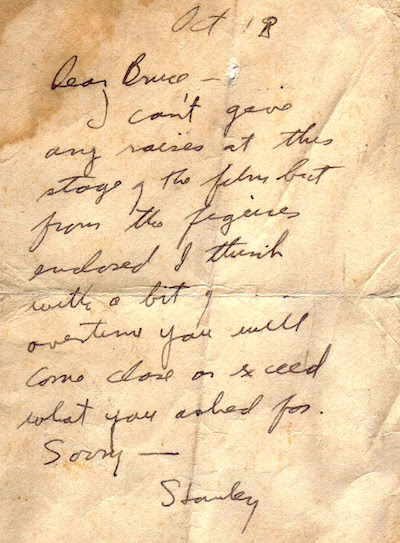 Oct 18
Dear Bruce —
I can't give
any raises at this
stage of the film but
from the figures
enclosed I think
with a bit of
overtime you will
come close or exceed
what you asked for.
Sorry —
Stanley